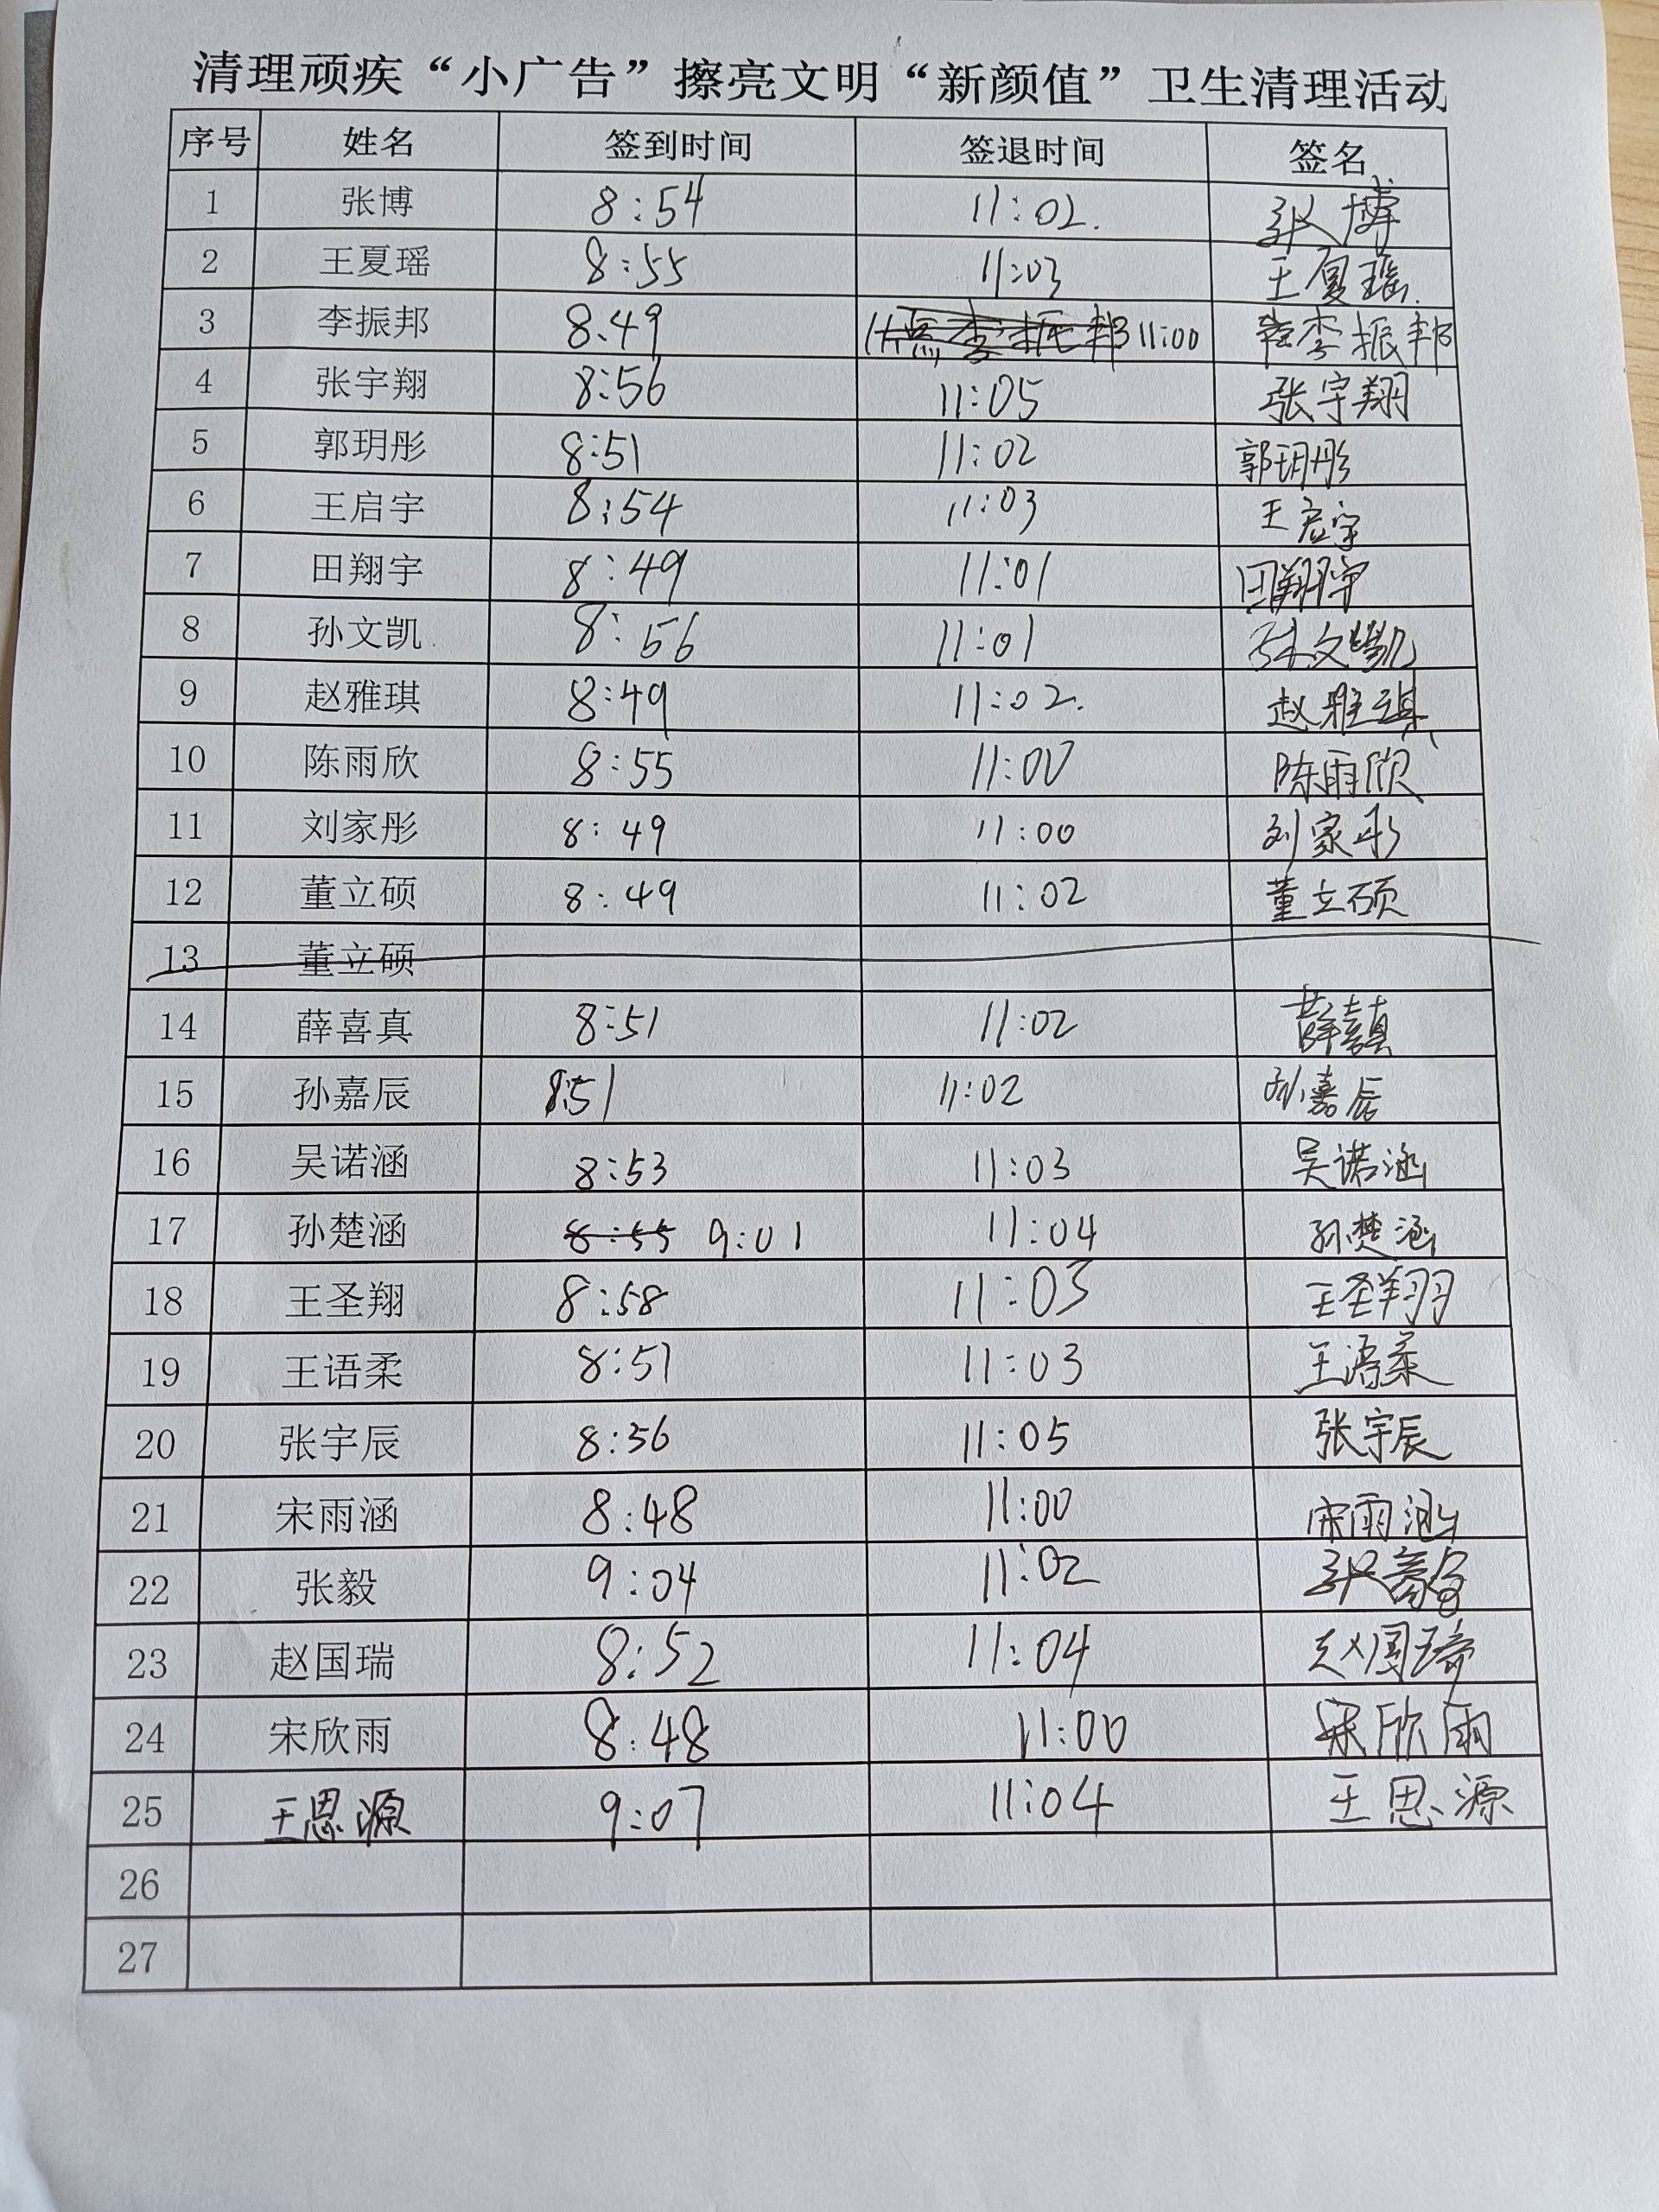 清理顽疾“小广告”擦亮文明“新颜值”卫生清理活动
序号 姓名 签到时间 签退时间 签名
1 张博 8:54 11:02. 张博
2 王夏瑶 8:55 11:03 王夏瑶.
3 李振邦 8:49 11点李振邦 11:00 李振邦
4 张宇翔 8:56 11:05 张宇翔
5 郭玥彤 8:51 11:02 郭玥彤
6 王启宇 8:54 11:03 王启宇
7 田翔宇 8:49 11:01 田翔宇
8 孙文凯 8:56 11:01 孙文凯
9 赵雅琪 8:49 11:02. 赵雅琪
10 陈雨欣 8:55 11:00 陈雨欣
11 刘家彤 8:49 11:00 刘家彤
12 董立硕 8:49 11:02 董立硕
13 董立硕
14 薛喜真 8:51 11:02 薛喜真
15 孙嘉辰 8:51 11:02 孙嘉辰
16 吴诺涵 8:53 11:03 吴诺涵
17 孙楚涵 8:55 9:01 11:04 孙楚涵
18 王圣翔 8:58 11:03 王圣翔
19 王语柔 8:51 11:03 王语柔
20 张宇辰 8:56 11:05 张宇辰
21 宋雨涵 8:48 11:00 宋雨涵
22 张毅 9:04 11:02 张毅
23 赵国瑞 8:52 11:04 赵国瑞
24 宋欣雨 8:48 11:00 宋欣雨
25 王思源 9:07 11:04 王思源
26
27